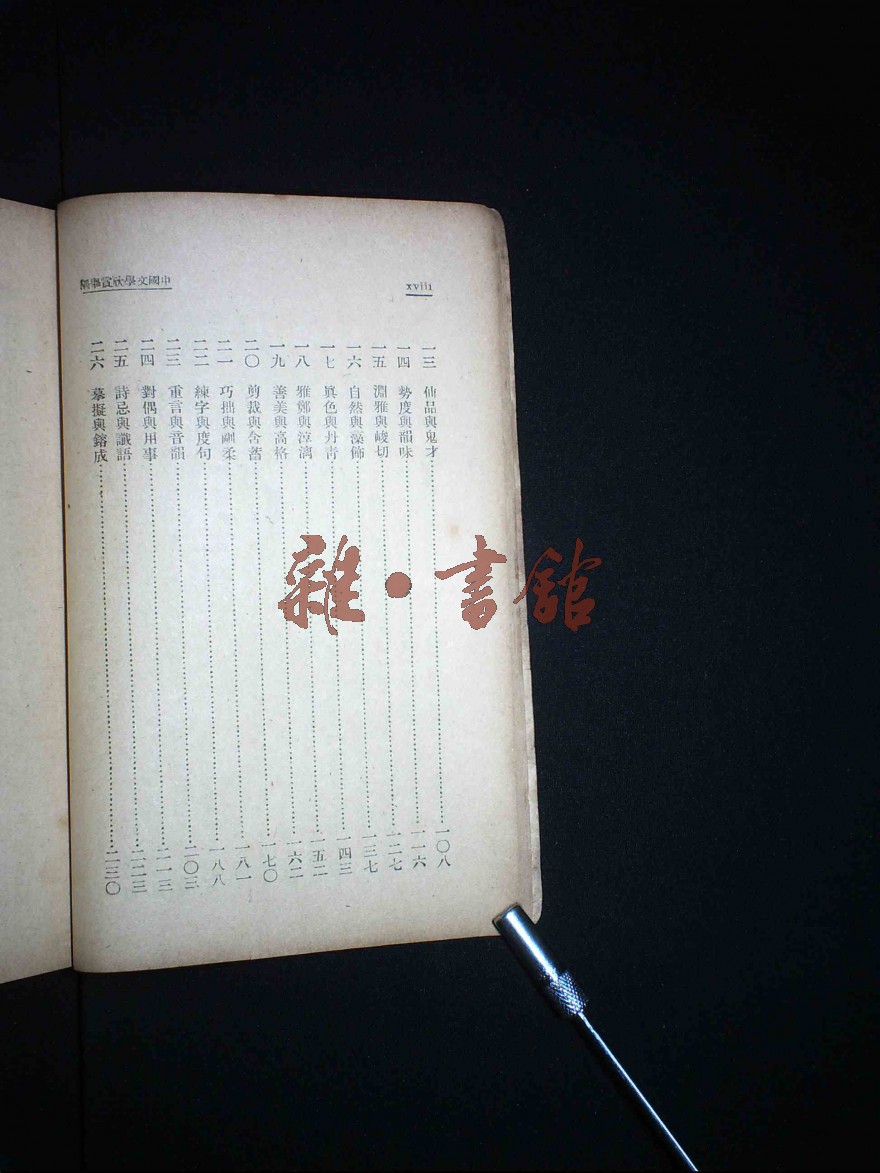 中國文學欣賞舉隅
xviii
一三 仙品與鬼才……一〇八
一四 勢度與韻味……一一六
一五 淵雅與峻切……一二七
一六 自然與藻飾……一三七
一七 眞色與丹青……一四三
一八 雅鄭與淳漓……一五二
一九 善美與高格……一六二
二〇 剪裁與含蓄……一七〇
二一 巧拙與剛柔……一八一
二二 練字與度句……一八八
二三 重言與音韻……二〇三
二四 對偶與用事……二一三
二五 詩忌與讖語……二二三
二六 摹擬與鎔成……二三〇
雜·書館